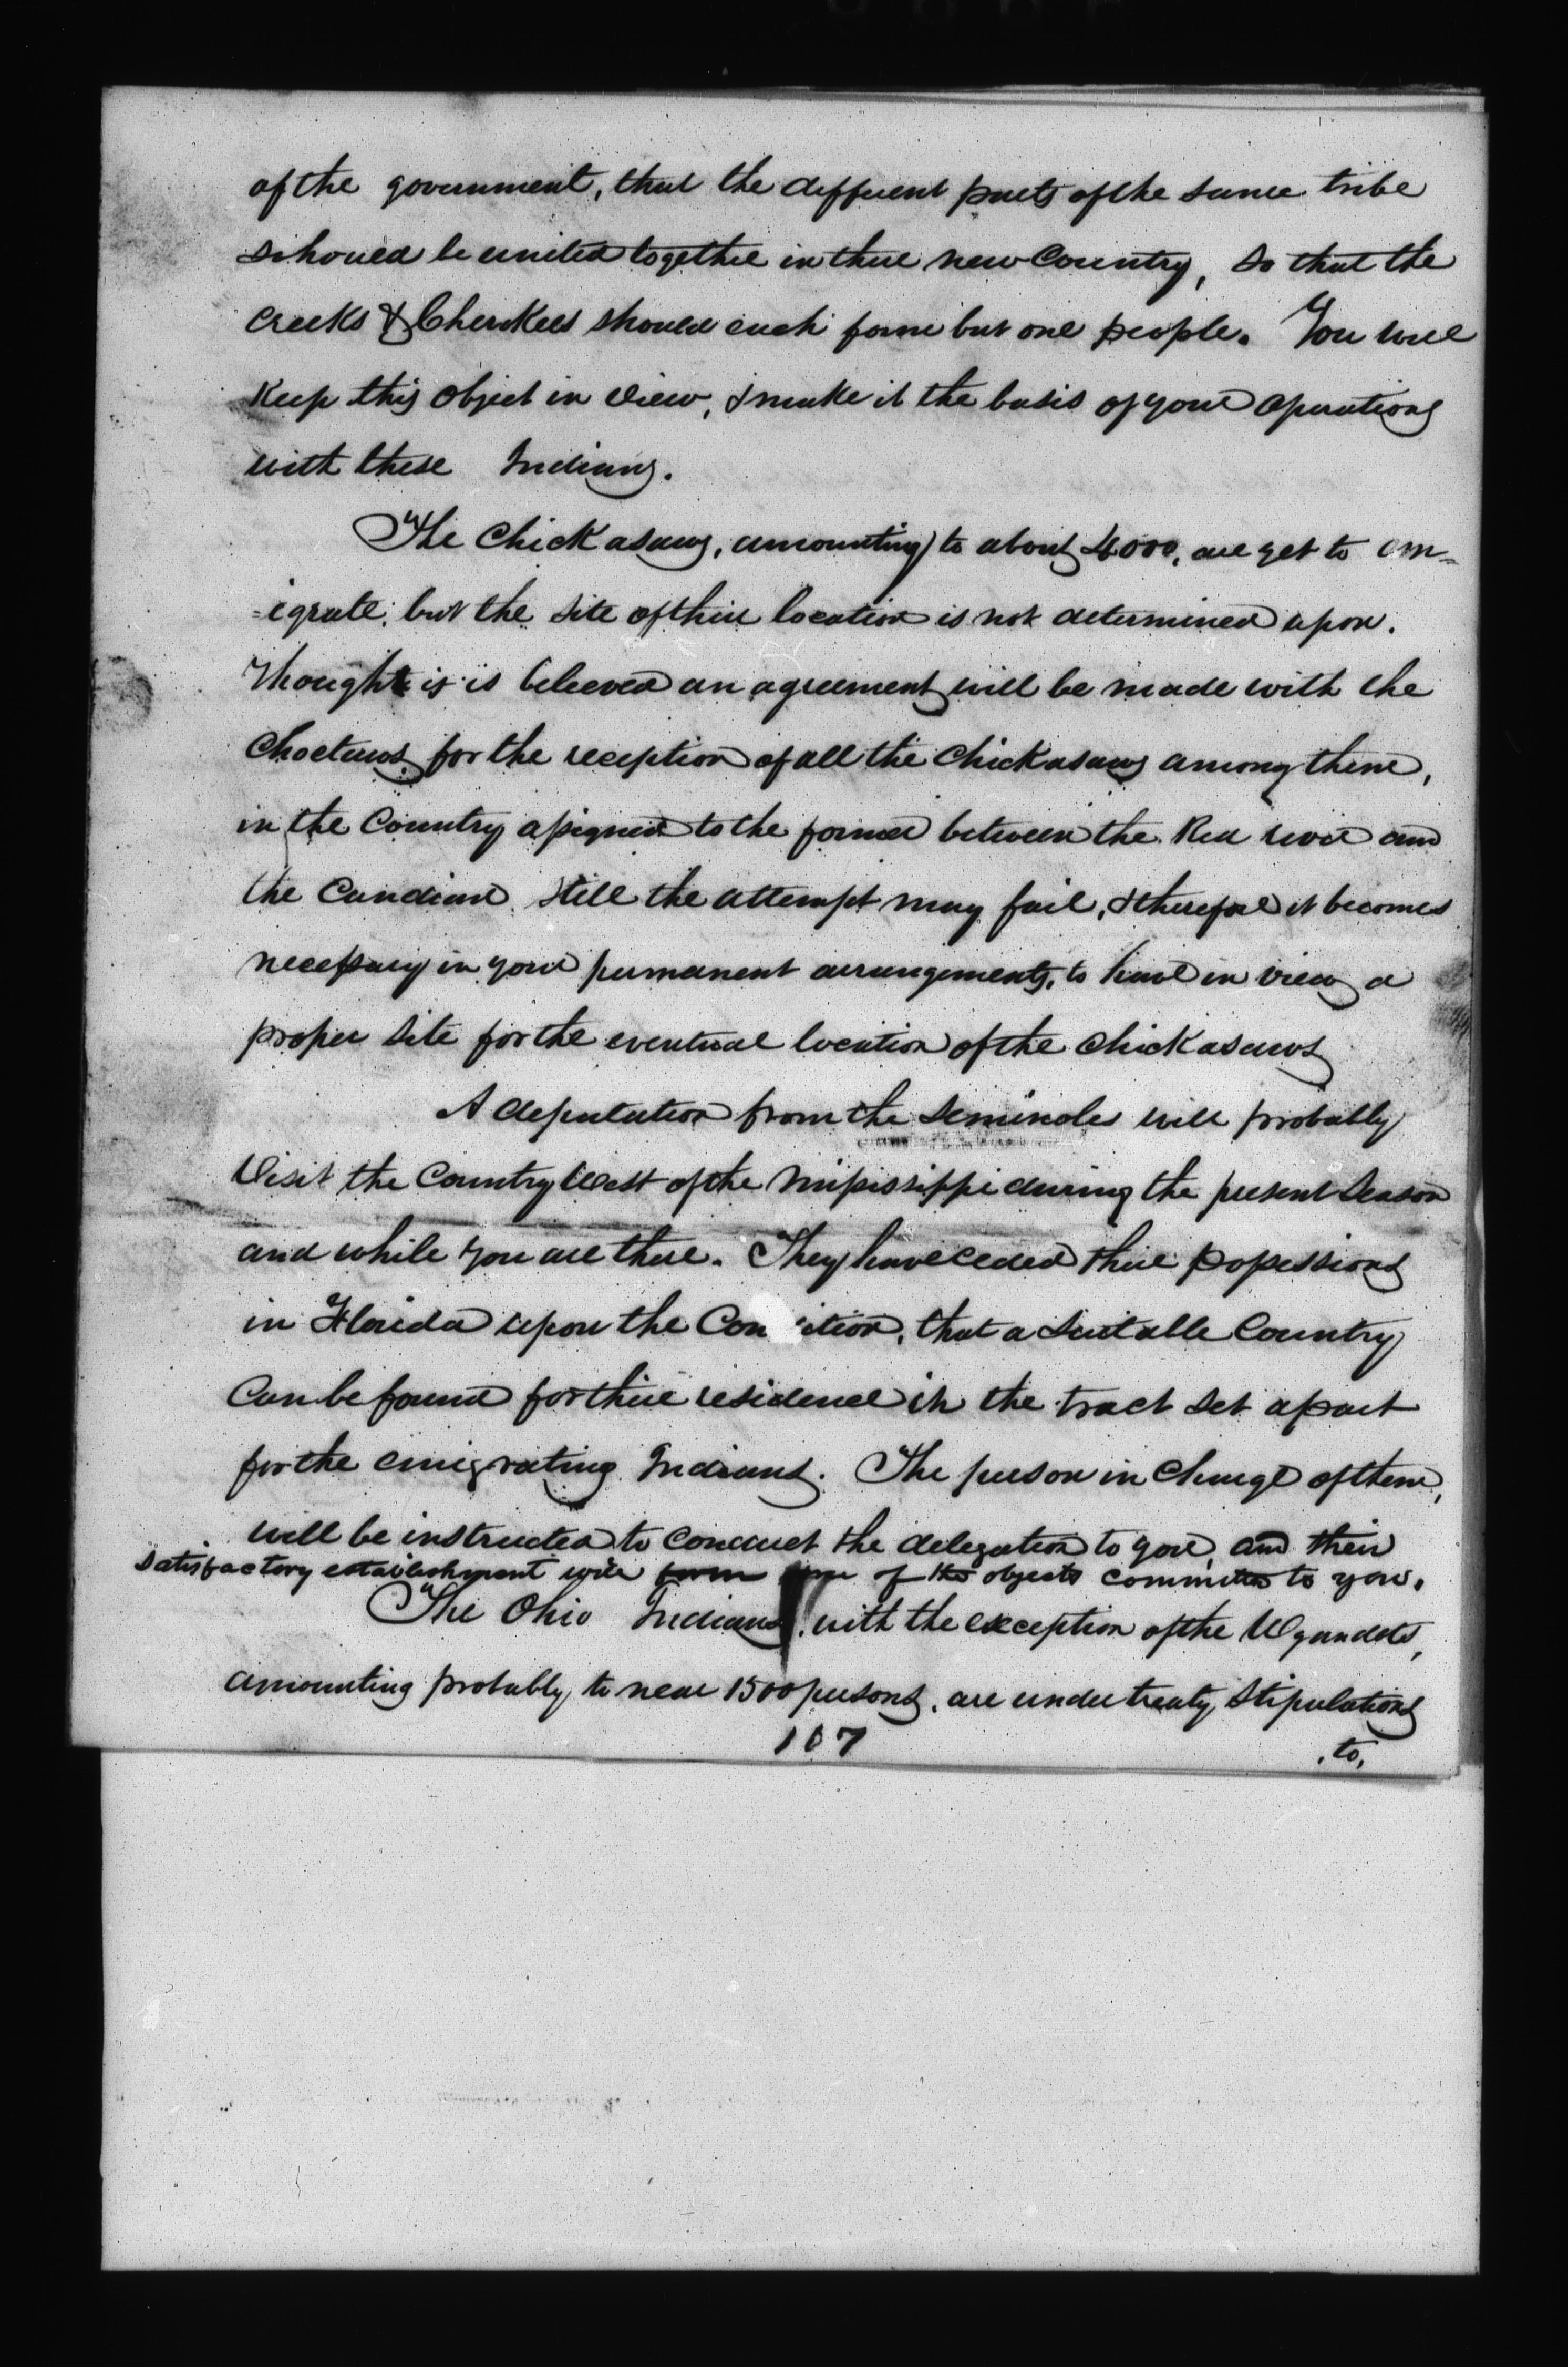 of the government, that the different parts of the same tribe
should be united together in their new Country, so that the
Creeks & Cherokees should each form but one people. You will
keep this object in view, & make it the basis of your operations
with these Indians.
The Chickasaws, amounting to about 4000, are yet to em=
=igrate; but the site of their location is not determined upon.
Though it is believed an agreement will be made with the
Choctaws for the reception of all the Chickasaws among them,
in the Country assigned to the former between the Red river and
the Canadian. Still the attempt may fail, & therefore it becomes
necessary in your permanent arrangements, to have in view a
proper site for the eventual location of the Chickasaws
A deputation from the Seminoles will probably
visit the Country West of the Mississippi during the present Season
and while you are there. They have ceded their possessions
in Florida upon the Con ition, that a suitable Country
Can be found for their residence in the tract set apart
for the emigrating Indians. The person in charge of them,
will be instructed to conduct the delegation to you, and their
satisfactory establishment will form one of the objects committed to you.
The Ohio Indians, with the exception of the Wyandots,
amounting probably to near 1500 persons, are under treaty stipulations
107
to